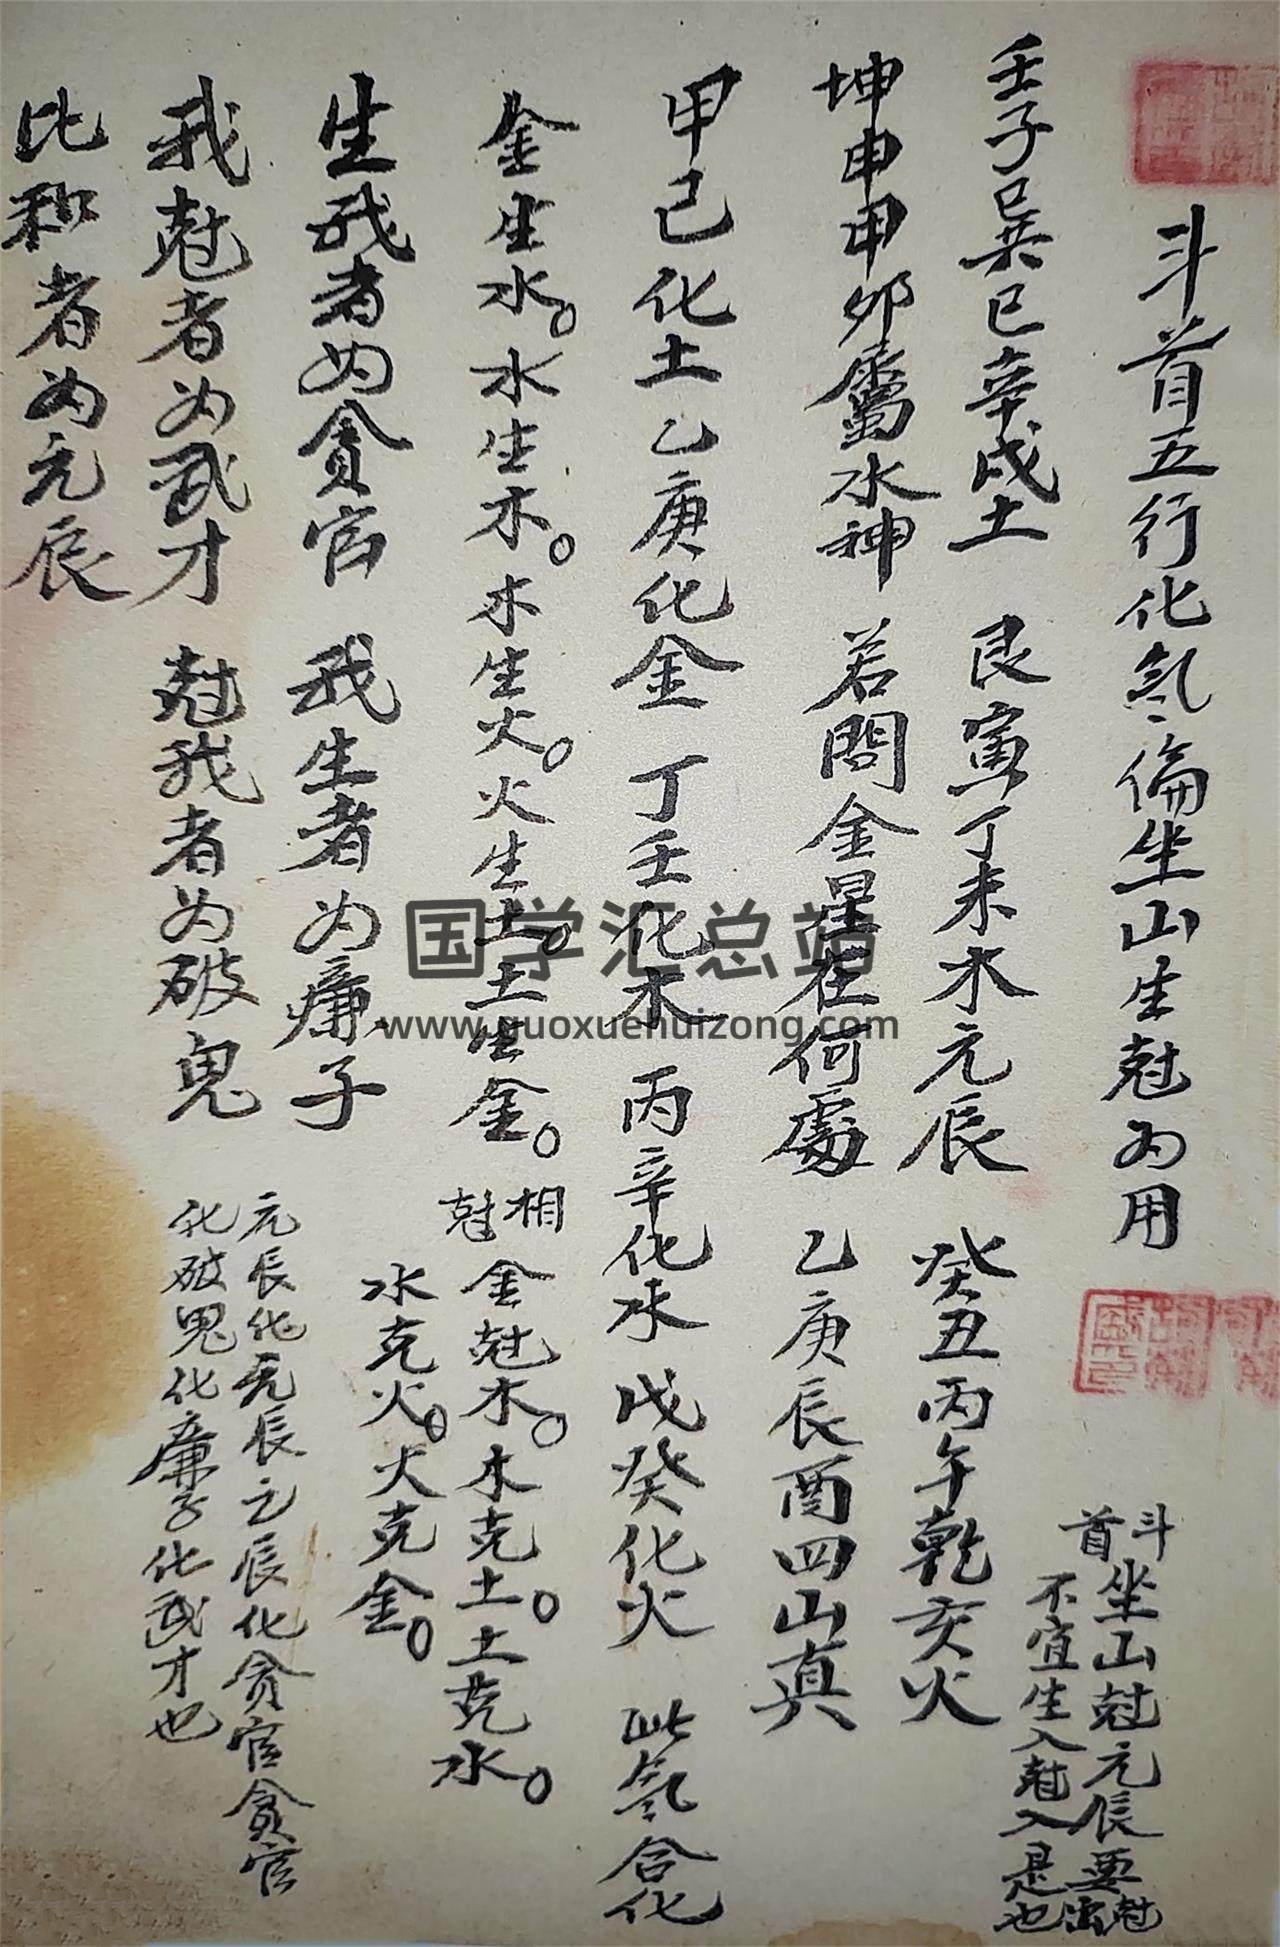 斗首五行化氣倫坐山生尅为用
斗首
坐山尅元辰要尅出
不宜生入尅入是也
壬子巽巳辛戌土 艮寅丁未木元辰 癸丑丙午乾亥火
坤申甲卯屬水神 若問金星在何處 乙庚辰酉四山真
甲己化土乙庚化金 丁壬化木 丙辛化水 戊癸化火 此氣合化
金生水。水生木。木生火。火生土。土生金。
相尅
金尅木。木克土。土克水。
水克火。火克金。
生我者为貪官 我生者为廉子
我尅者为武才 尅我者为破鬼
比和者为元辰
元辰化元辰元辰化貪官貪官
化破鬼化廉子化武才也
国学汇总站
www.guoxuehuizong.com